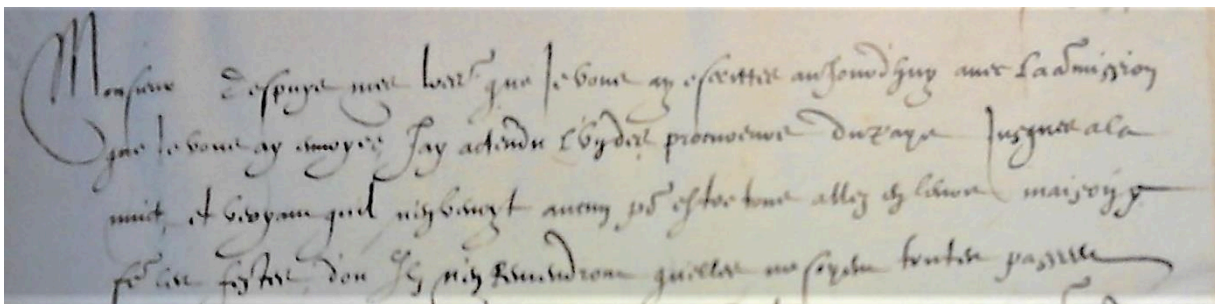 Monsieur Despuys mes lettres que Je vous ay escrittes aujourdhuy avec la
que Je vous ay envoyee Jay actendu procureurs du pays Jusques a la
nuict et voyant quil aucun po estre tous allez en leurs maisons
les festes don Ilz ne Reviendront quelles ne soyent toutes passees